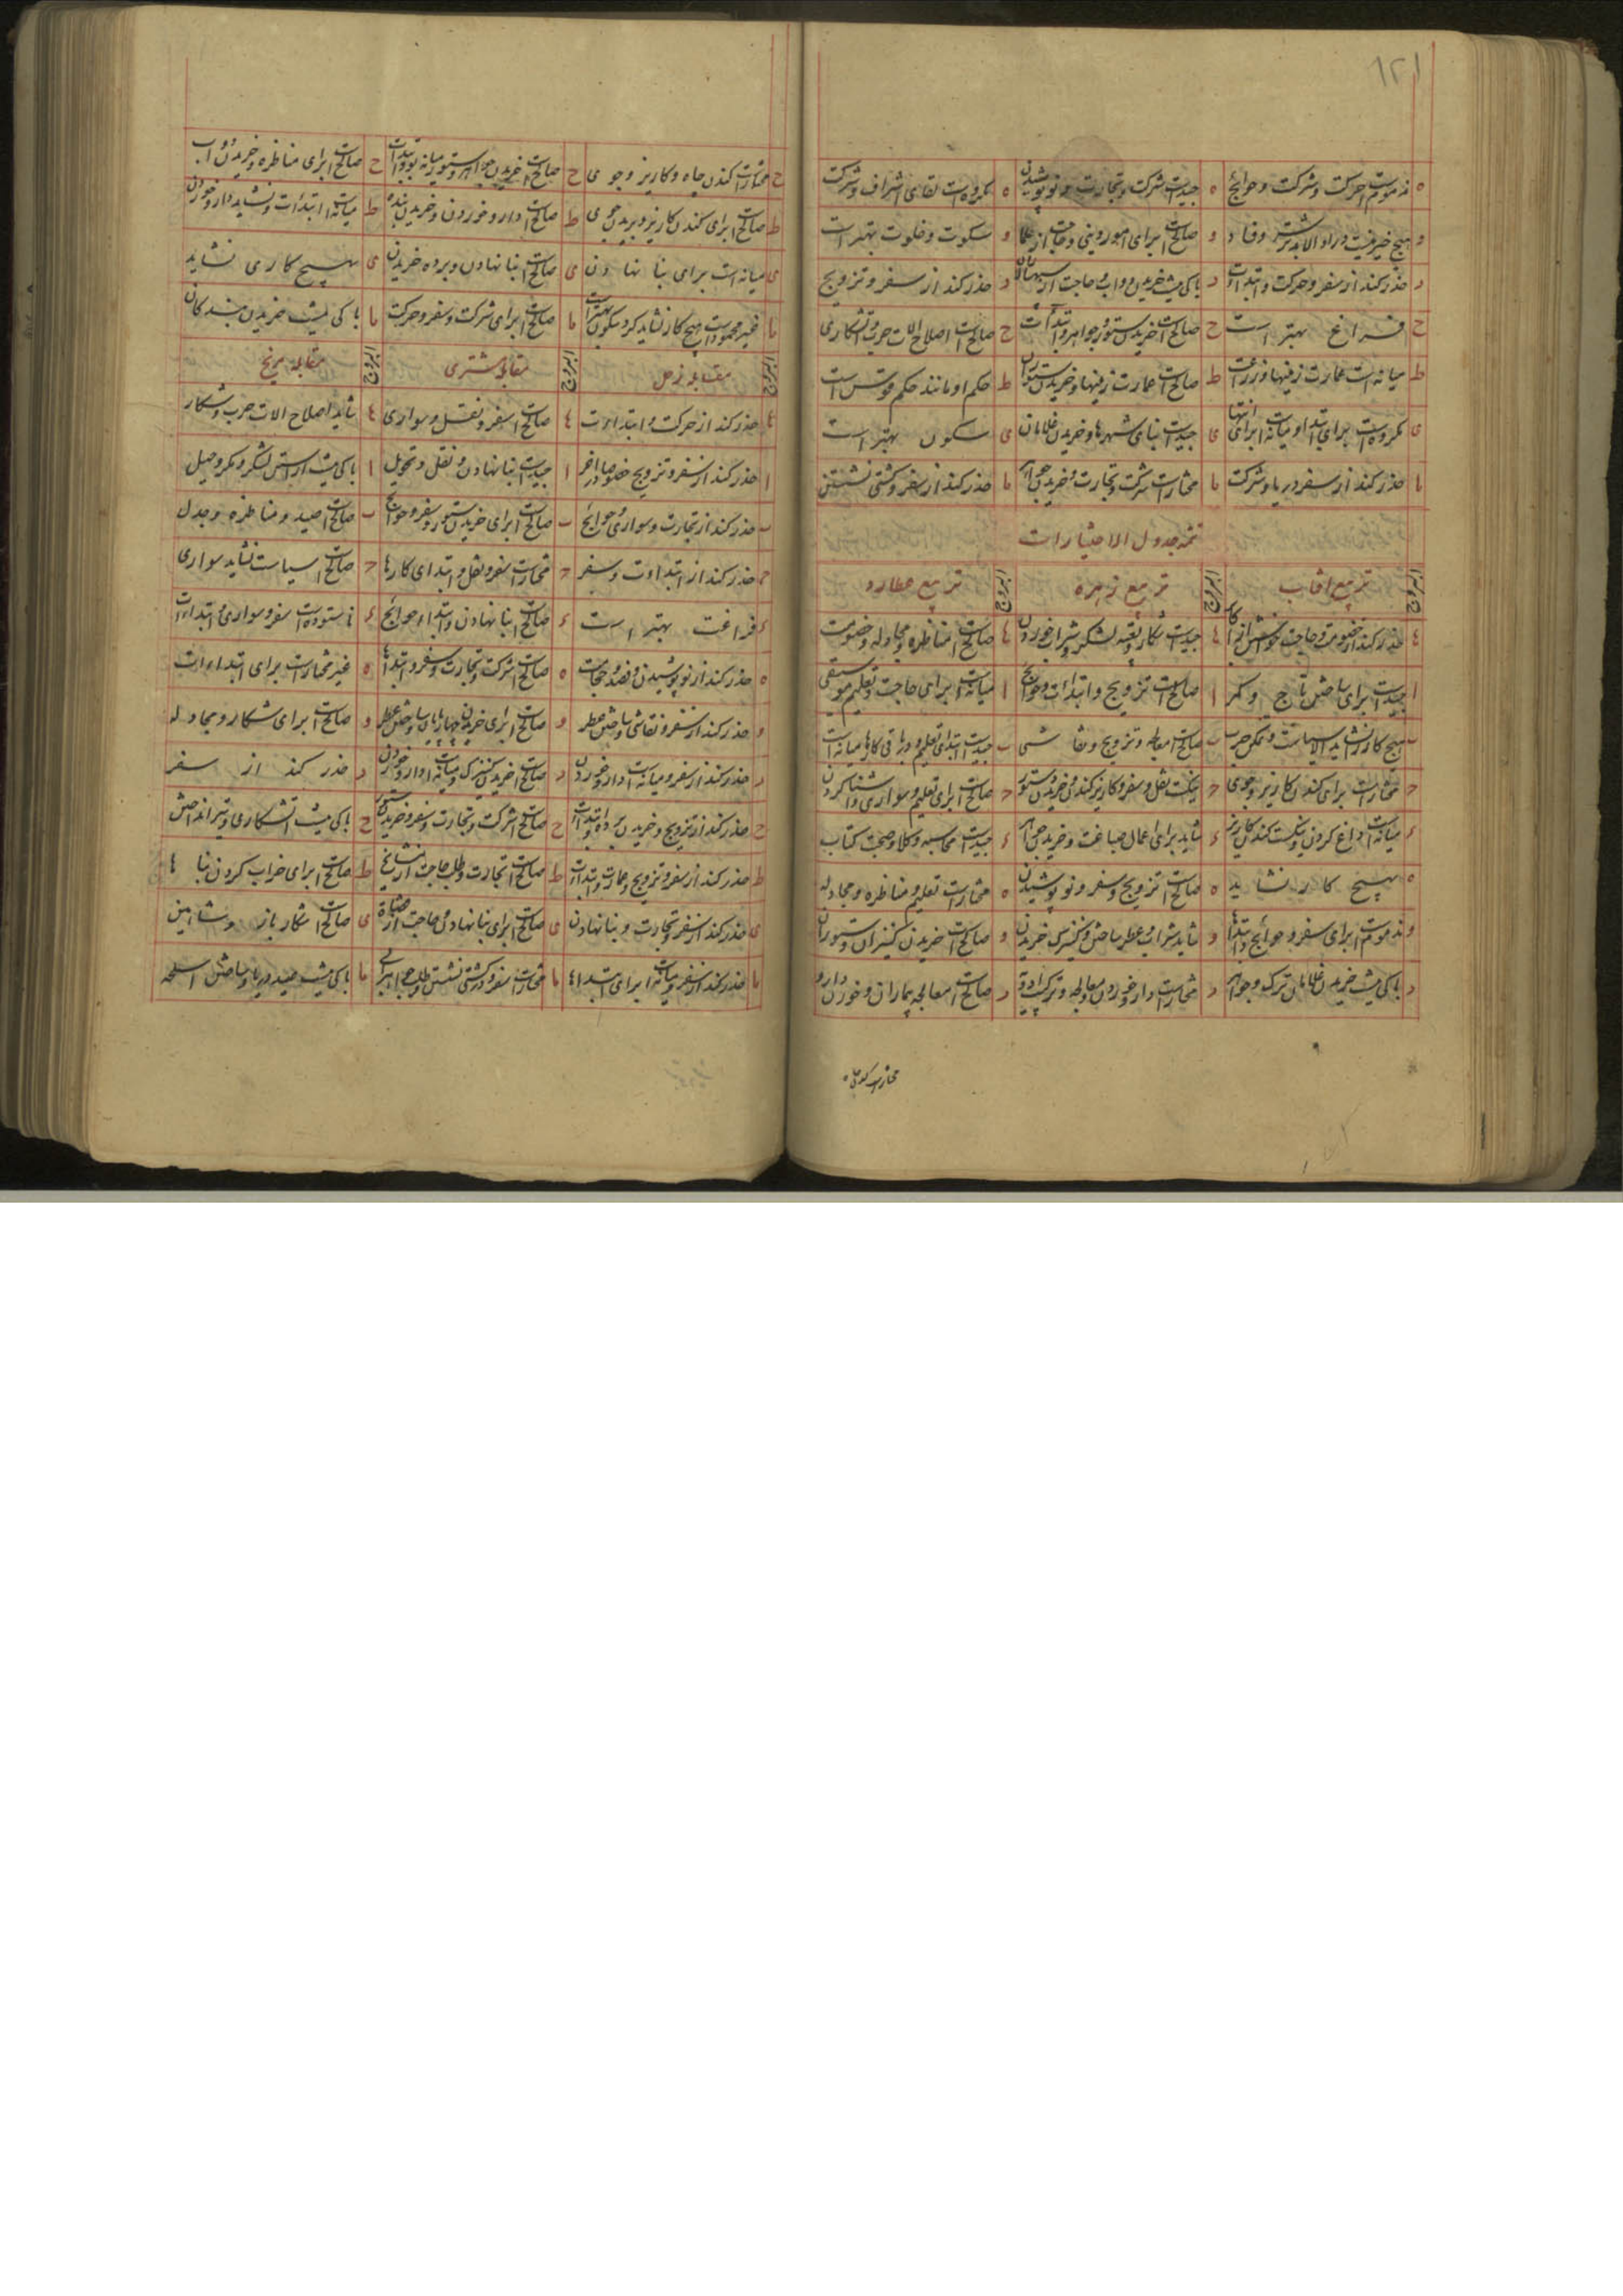 ۱۲۱
ه مذمومست حرکت و شرکت و حوایج ه جیدست شرکت و تجارت و نو پوشیدن ه مکروهست لقای اشراف و شرکت
و هیچ خیر نیست درو الا تدبیر شر و فساد و صالحست برای امور دینی و حاجت از علما و سکوت و خلوت بهتر است
ر حذر کند از سفر و حرکت و ابتداات ر باکی نیست خریدن دواب و حاجت از ر حذر کند از سفر و تزویج
ح فراغ بهتر است ح صالحست خریدن ستور و جواهر و ابتداات ح صالحست اصلاح الات حرب و اتشکاری
ط میانه است عمارت زمینها و زراعت ط صالحست عمارت زمینها و خریدن ستوران ط حکم او مانند حکم قوس است
ی مکروهست برای ابتدا و میانه است برای انتها ی جیدست بنای شهرها و خریدن غلامان ی سکون بهتر است
یا حذر کند از سفر دریا و شرکت یا مختارست شرکت و تجارت و خریدن جواهر یا حذر کند از سفر و کشتی نشستن
تتمه جدول الاختیارات
البروج تربیع افتاب البروج تربیع زهره البروج تربیع عطارد
ها حذر کند از خصومت و حاجت خواستن از ها جیدست شکار و تعبیه لشکر و شراب خوردن ها صالحست مناظره و مجادله و خصومت
ا جیدست برای ساختن تاج و کمر ا صالحست تزویج و ابتداات و حوایج ا میانه است برای حاجت و تعلیم موسیقی
ب هیچ کار نشاید الا سیاست و مکر حرب ب صالحست معالجه و تزویج و نقاشی ب جیدست ابتدای تعلیم و در باقی کارها میانه است
ح مختارست برای کندن کاریز و جوی ح نیکست نقل و سفر و کاریز کندن و خریدن ستور ح صالحست برای تعلیم و سواری و اشنا کردن
د میانه است داغ کردن و نیکست کندن کاریز د شاید برای اعمال صباغت و خریدن جواهر د جیدست محاسبه و کلا و صحبت کتاب
ه هیچ کار نشاید ه صالحست تزویج و سفر و نو پوشیدن ه مختارست تعلیم و مناظره و مجادله
و مذمومست برای سفر و حوایج و ابتداها و شاید شراب و عطر ساختن و کنیزک خریدن و صالحست خریدن کنیزان و ستوران
ر باکی نیست خریدن غلامان ترک و جواهر ر مختارست دارو خوردن و معالجه و ترکیب ادویه ر صالحست معالجه بیماران و خوردن دارو
مختارست کندن چاه
ح مختارست کندن چاه و کاریز و جوی ح صالحست خریدن جواهر و ستور و میانه بود ابتداات ح صالحست برای مناظره و خریدن دواب
ط صالحست برای کندن کاریز و بریدن جوی ط صالحست دارو خوردن و خریدن بنده ط میانه است ابتداات و نشاید دارو خوردن
ی میانه است برای بنا نهادن ی صالحست بنا نهادن و برده خریدن ی هیچ کاری نشاید
یا غیر محمودست هیچ کار نشاید کرد و سکون بهتر است یا صالحست برای شرکت و سفر و حرکت یا باکی نیست خریدن بندکان
البروج مقابله زحل البروج مقابله مشتری البروج مقابله مریخ
ها حذر کند از حرکت و ابتداات ها صالحست سفر و نقل و سواری ها شاید اصلاح الات حرب و شکار
ا حذر کند از سفر و تزویج خصوصا در اخر ا جیدست بنا نهادن و نقل و تحویل ا باکی نیست اراستن لشکر و مکر و حیل
ب حذر کند از تجارت و سواری و حوایج ب صالحست برای خریدن ستور و سفر و حوایج ب صالحست صید و مناظره و جدل
ح حذر کند از ابتداات و سفر ح مختارست سفر و نقل و ابتدای کارها ح صالحست سیاست نشاید سواری
د فراغت بهتر است د صالحست بنا نهادن و ابتداء حوایج د ناستوده است سفر و سواری و ابتداات
ه حذر کند از نو پوشیدن و فصد و حجامت ه صالحست شرکت و تجارت و سفر و ابتداها ه غیر مختارست برای ابتداات
و حذر کند از سفر و نقاشی و ساختن عطر و صالحست برای خریدن چهارپای و ساختن عطر و صالحست برای شکار و مجادله
ر حذر کند از سفر و میانه است دارو خوردن ر صالحست خریدن کنیزک و میانه است دارو خوردن ر حذر کند از سفر
ح حذر کند از تزویج و خریدن برده و ابتداات ح صالحست شرکت و تجارت و سفر و خریدن ستور ح باکی نیست اتشکاری و تیر انداختن
ط حذر کند از سفر و تزویج و عمارت و ابتداات ط صالحست تجارت و طلب حاجت از مشایخ ط صالحست برای خراب کردن بناها
ی حذر کند از سفر و تجارت و بنا نهادن ی صالحست برای بنا نهادن و حاجت از قضاة ی صالحست شکار باز و شاهین
یا حذر کند از سفر و میانه است برای ابتداها یا مختارست سفر و در کشتی نشستن و طلب جواهر یا باکی نیست صید دریا و ساختن اسلحه